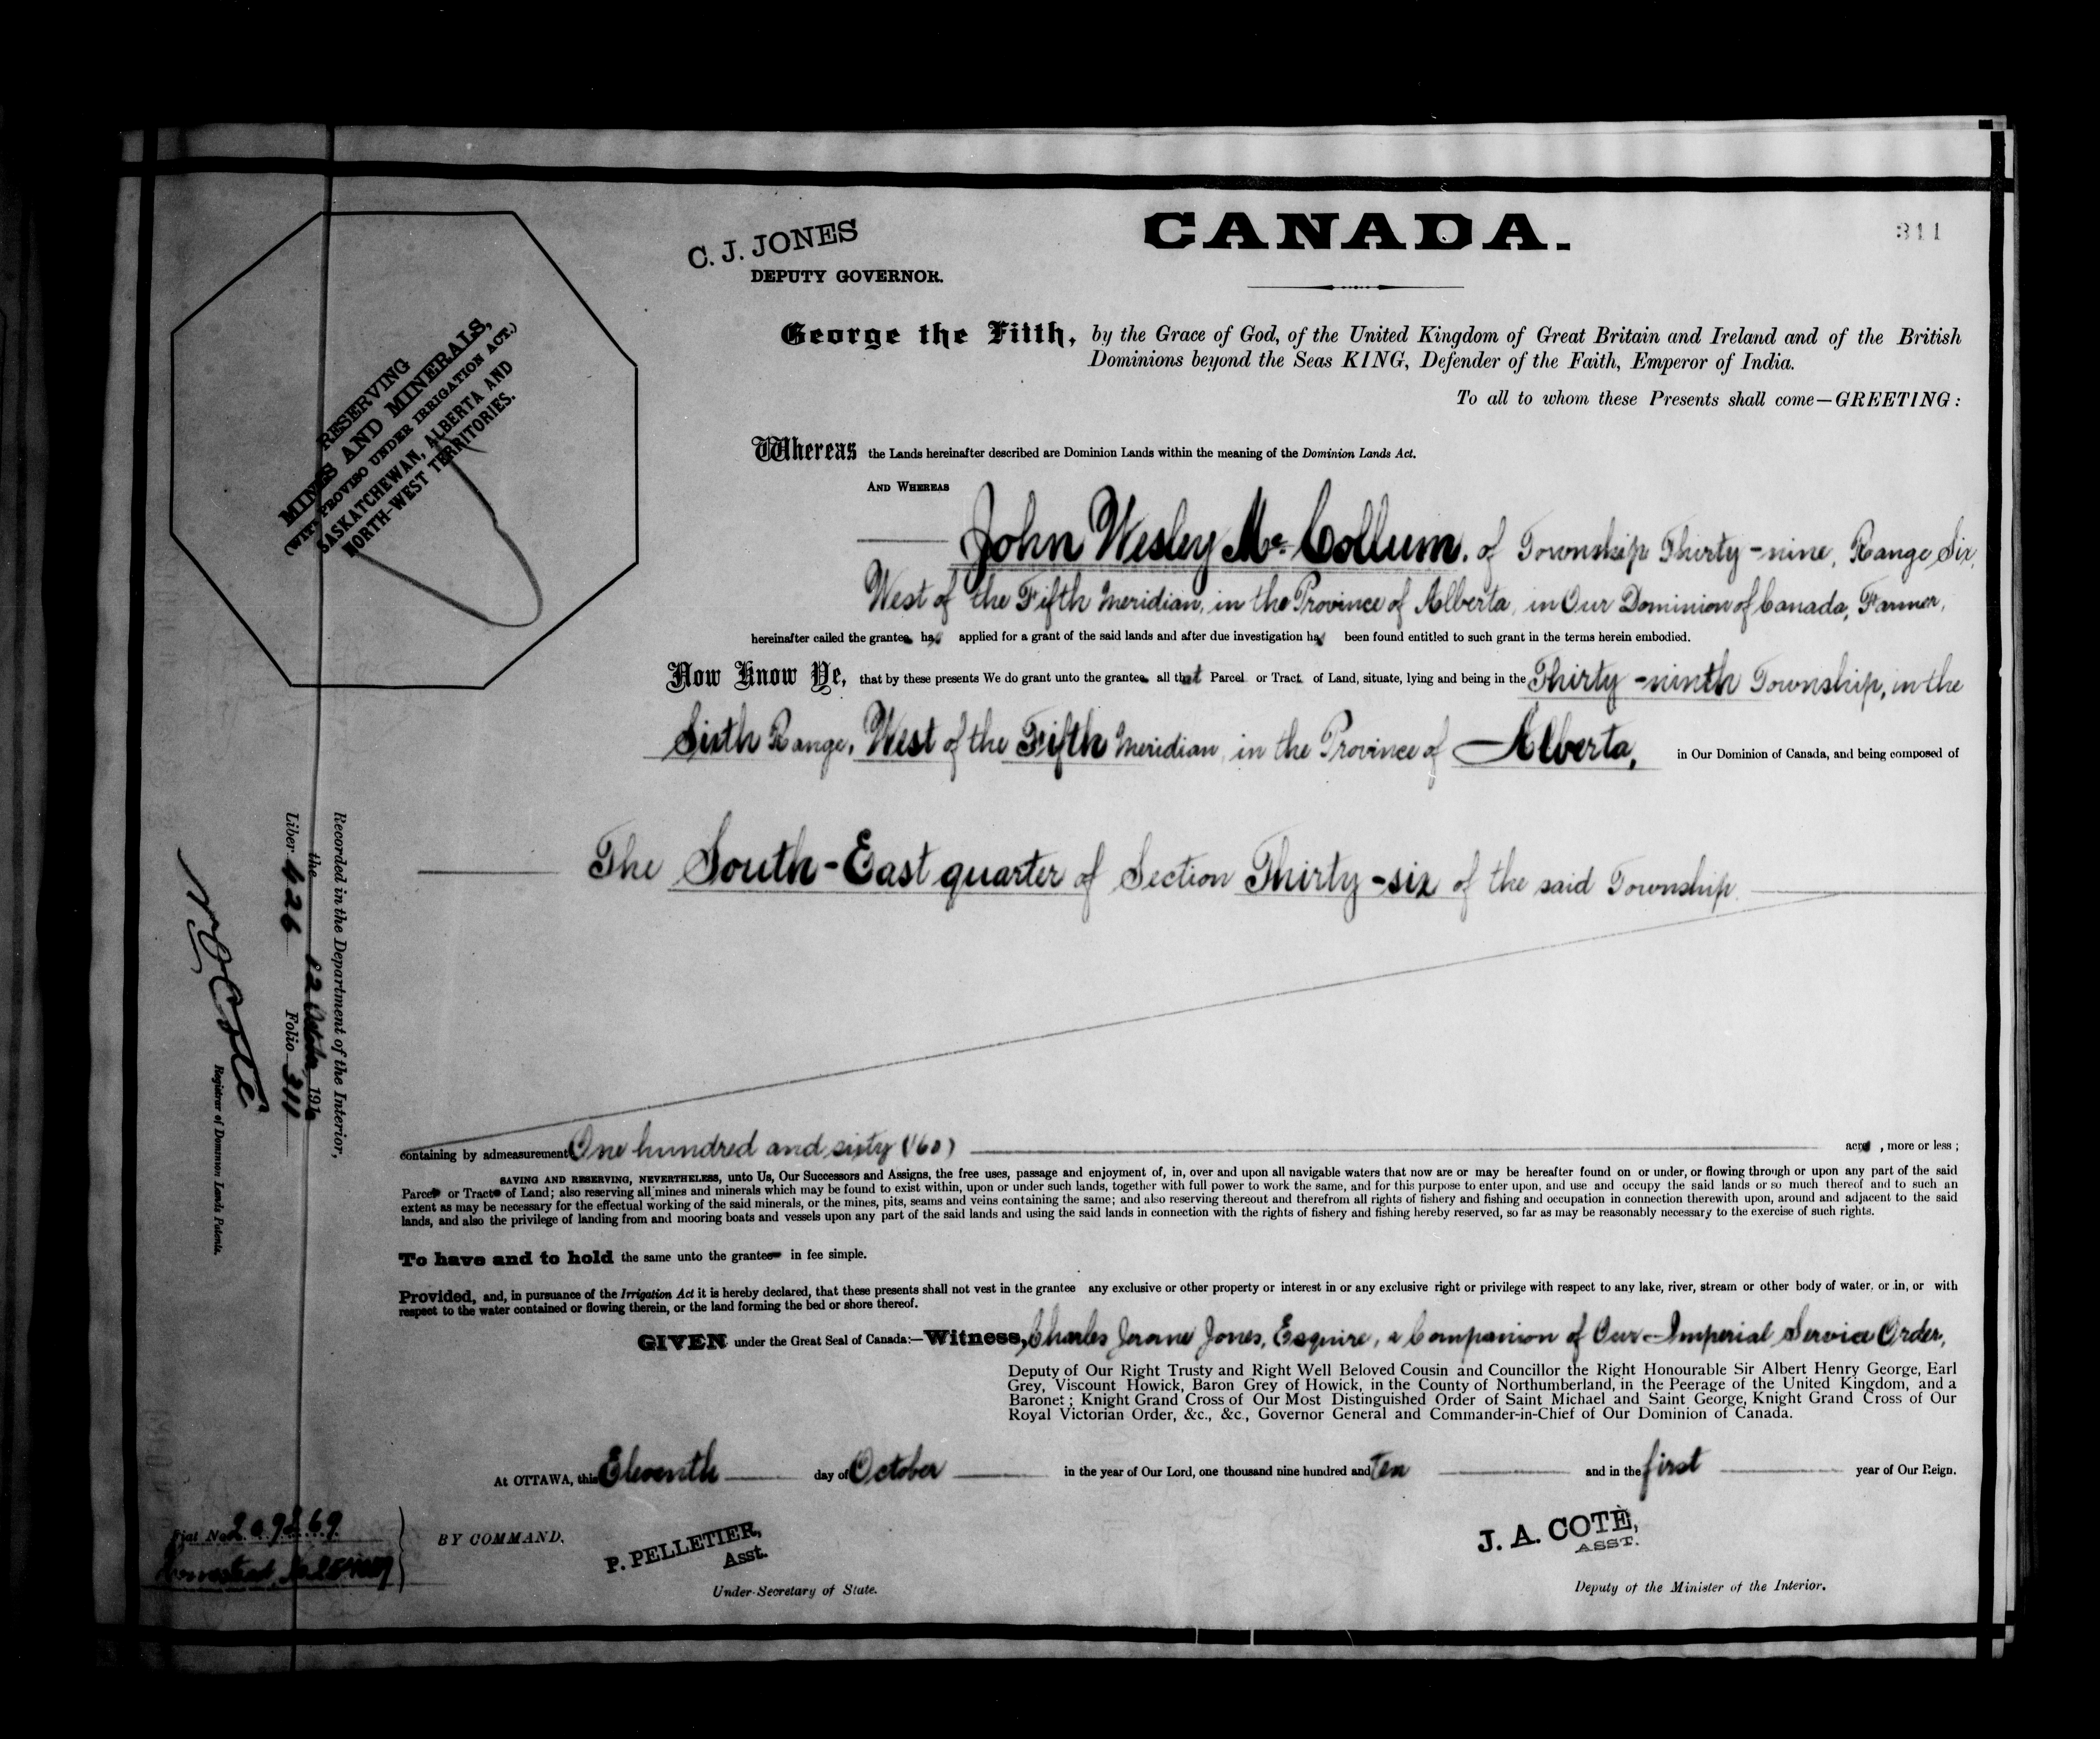 C. J. JONES
DEPUTY GOVERNOR.
CANADA.
311
RESERVING
MINES AND MINERALS,
(WITH PROVISO UNDER IRRIGATION ACT.)
SASKATCHEWAN, ALBERTA AND
NORTH-WEST TERRITORIES.
George the Fifth, by the Grace of God, of the United Kingdom of Great Britain and Ireland and of the British
Dominions beyond the Seas KING, Defender of the Faith, Emperor of India.
To all to whom these Presents shall come—GREETING:
Whereas the Lands hereinafter described are Dominion Lands within the meaning of the Dominion Lands Act.
AND WHEREAS
John Wesley Mc Collum, of Township Thirty-nine, Range Six,
West of the Fifth Meridian, in the Province of Alberta, in Our Dominion of Canada, Farmer,
hereinafter called the grantee has applied for a grant of the said lands and after due investigation has been found entitled to such grant in the terms herein embodied.
Now Know Ye, that by these presents We do grant unto the grantee all that Parcel or Tract of Land, situate, lying and being in the Thirty-ninth Township, in the
Sixth Range, West of the Fifth Meridian, in the Province of Alberta, in Our Dominion of Canada, and being composed of
The South-East quarter of Section Thirty-six of the said Township.
containing by admeasurement One hundred and sixty (160) acres, more or less;
SAVING AND RESERVING, NEVERTHELESS, unto Us, Our Successors and Assigns, the free uses, passage and enjoyment of, in, over and upon all navigable waters that now are or may be hereafter found on or under, or flowing through or upon any part of the said
Parcel or Tract of Land; also reserving all mines and minerals which may be found to exist within, upon or under such lands, together with full power to work the same, and for this purpose to enter upon, and use and occupy the said lands or so much thereof and to such an
extent as may be necessary for the effectual working of the said minerals, or the mines, pits, seams and veins containing the same; and also reserving thereout and therefrom all rights of fishery and fishing and occupation in connection therewith upon, around and adjacent to the said
lands, and also the privilege of landing from and mooring boats and vessels upon any part of the said lands and using the said lands in connection with the rights of fishery and fishing hereby reserved, so far as may be reasonably necessary to the exercise of such rights.
To have and to hold the same unto the grantee in fee simple.
Provided, and, in pursuance of the Irrigation Act it is hereby declared, that these presents shall not vest in the grantee any exclusive or other property or interest in or any exclusive right or privilege with respect to any lake, river, stream or other body of water, or in, or with
respect to the water contained or flowing therein, or the land forming the bed or shore thereof.
GIVEN under the Great Seal of Canada:—Witness, Charles Jerome Jones, Esquire, a Companion of Our Imperial Service Order,
Deputy of Our Right Trusty and Right Well Beloved Cousin and Councillor the Right Honourable Sir Albert Henry George, Earl
Grey, Viscount Howick, Baron Grey of Howick, in the County of Northumberland, in the Peerage of the United Kingdom, and a
Baronet; Knight Grand Cross of Our Most Distinguished Order of Saint Michael and Saint George, Knight Grand Cross of Our
Royal Victorian Order, &c., &c., Governor General and Commander-in-Chief of Our Dominion of Canada.
At OTTAWA, this Eleventh day of October in the year of Our Lord, one thousand nine hundred and Ten and in the first year of Our Reign.
BY COMMAND,
P. PELLETIER,
Asst.
Under-Secretary of State.
J. A. COTÈ,
ASST.
Deputy of the Minister of the Interior.
Recorded in the Department of the Interior,
the 12 October, 1910
Liber 426 Folio 311
N O Coté
Registrar of Dominion Lands Patents.
Fiat No. 209869
Homestead